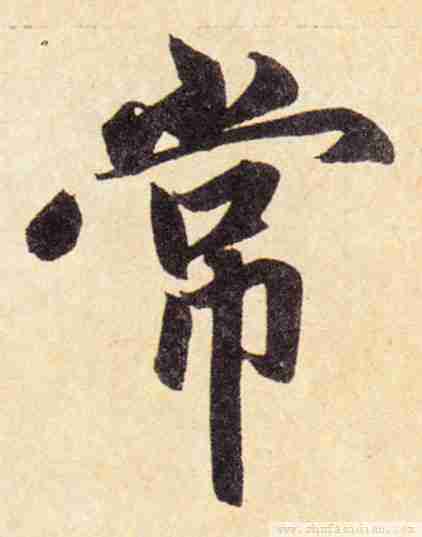 常
www.shufazidian.com